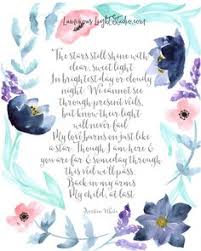 Luminous Light Studio.com
The stars still shine with
clear, sweet light
In brightest day or cloudy
night. We cannot see
through present veils,
but know their light
will never fail.
My love burns on just like
a star. Though I am here &
you are far & someday through
this veil we'll pass.
Back in my arms
My child, at last.
White